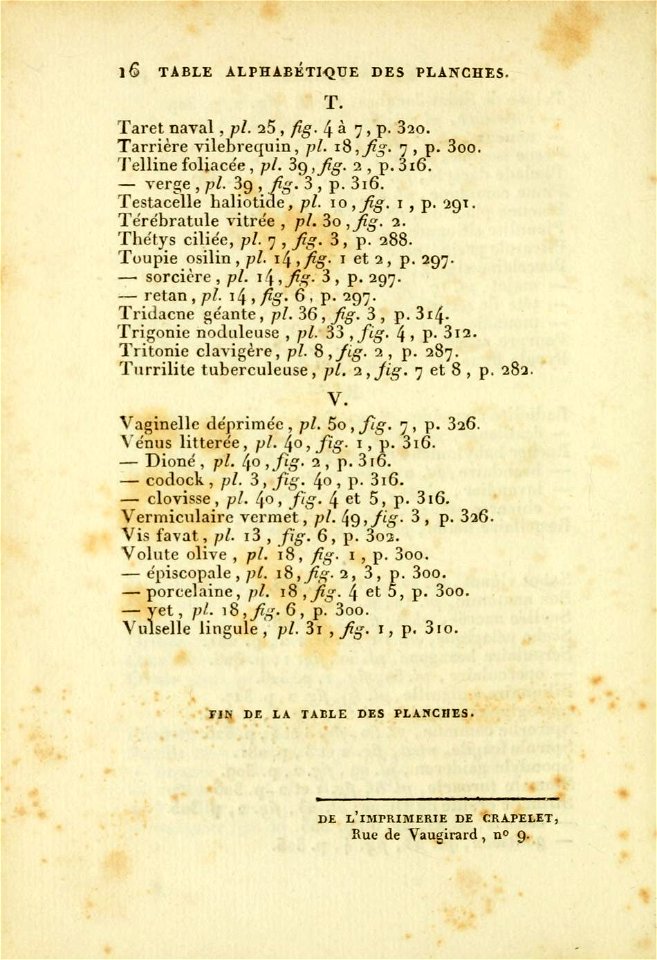 16 TABLE ALPHABÉTIQUE DES PLANCHES.
T.
Taret naval, pl. 25, fig. 4 à 7, p. 320.
Tarrière vilebrequin, pl. 18, fig. 7, p. 300.
Telline foliacée, pl. 39, fig. 2, p. 316.
— verge, pl. 39, fig. 3, p. 316.
Testacelle haliotide, pl. 10, fig. 1, p. 291.
Térébratule vitrée, pl. 30, fig. 2.
Thétys ciliée, pl. 7, fig. 3, p. 288.
Toupie osilin, pl. 14, fig. 1 et 2, p. 297.
— sorcière, pl. 14, fig. 3, p. 297.
— retan, pl. 14, fig. 6, p. 297.
Tridacne géante, pl. 36, fig. 3, p. 314.
Trigonie noduleuse, pl. 33, fig. 4, p. 312.
Tritonie clavigère, pl. 8, fig. 2, p. 287.
Turrilite tuberculeuse, pl. 2, fig. 7 et 8, p. 282.
V.
Vaginelle déprimée, pl. 50, fig. 7, p. 326.
Vénus litterée, pl. 40, fig. 1, p. 316.
— Dioné, pl. 40, fig. 2, p. 316.
— codock, pl. 3, fig. 40, p. 316.
— clovisse, pl. 40, fig. 4 et 5, p. 316.
Vermiculaire vermet, pl. 49, fig. 3, p. 326.
Vis favat, pl. 13, fig. 6, p. 302.
Volute olive, pl. 18, fig. 1, p. 300.
— épiscopale, pl. 18, fig. 2, 3, p. 300.
— porcelaine, pl. 18, fig. 4 et 5, p. 300.
— yet, pl. 18, fig. 6, p. 300.
Vulselle lingule, pl. 31, fig. 1, p. 310.
FIN DE LA TABLE DES PLANCHES.
DE L'IMPRIMERIE DE CRAPELET,
Rue de Vaugirard, nº 9.